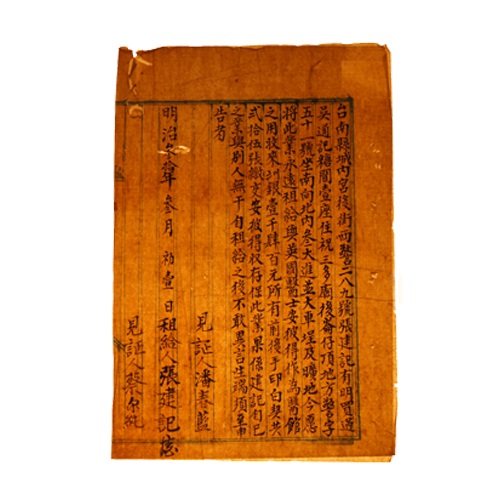 台南縣城內宮後街西門二八九號張建記有明買過
吳道記舊閣壹座住祝三多廟後崙仔頂地方
五十一號坐南向北內叁大進並大車埕及曠地今愿
將此業永遠租給與英國醫士安彼得作為醫館
之用收來洲銀壹千肆百元所有前後手印白契共
弍拾伍張繳交安彼得收存保此業果係建記自己
之業與別人無干自租給之後不敢異言生端須至
告者
見証人潘春藍
明治叁拾年叁月初壹日租給人張建記
見証人蔡